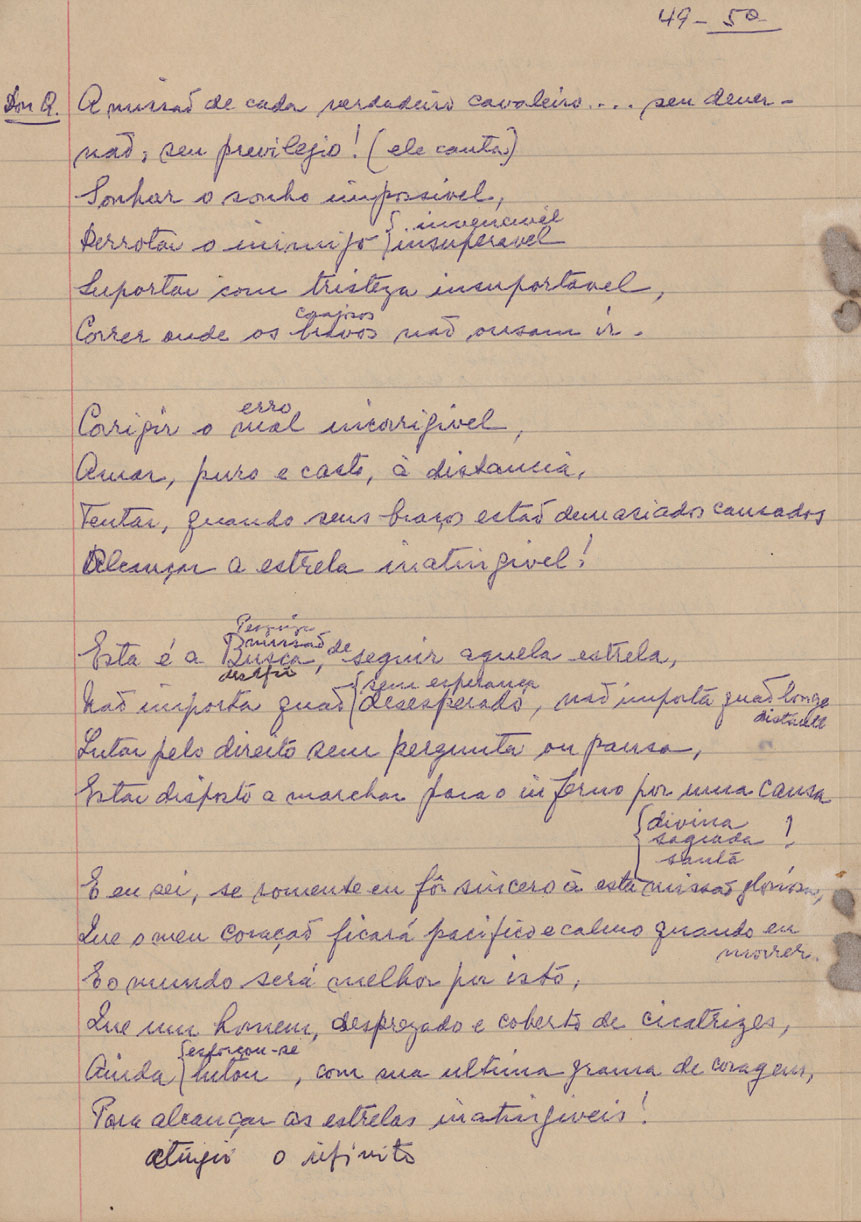 49 - 50
Don Q. A missão de cada verdadeiro cavaleiro.... seu dever -
não, seu previlegio! (ele canta)
Sonhar o sonho impossivel,
invencivel
Derrotar o inimigo { insuperavel
Suportar com tristeza insuportavel,
corajosos
Correr onde os bravos não ousam ir.
erro
Corrigir o mal incorrigivel,
Amar, puro e casto, à distancia,
Tentar, quando seus braços estão demasiados cansados
Alcançar a estrela inatingivel!
Pesquiza
missão
Esta é a Busca, de seguir aquela estrela,
desafio { sem esperança
Não importa quão desesperado, não importa quão longe
distante
Lutar pelo direito sem pergunta ou pausa,
Estar disposto a marchar para o inferno por uma causa
{ divina
sagrada !
santa
E eu sei, se somente eu fôr sincero à esta missão gloriosa,
Que o meu coração ficará pacifico e calmo quando eu
morrer.
E o mundo será melhor por isto,
Que um homem, desprezado e coberto de cicatrizes,
{ esforçou-se
Ainda lutou, com sua ultima grama de coragem,
Para alcançar as estrelas inatingiveis!
atingir o infinito